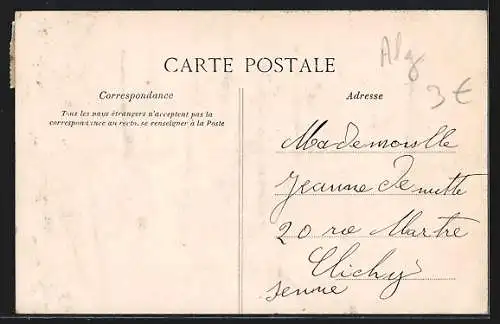 Alg
CARTE POSTALE
3 €
Correspondance
Adresse
Tous les pays étrangers n'acceptent pas la
correspondance au recto, se renseigner à la Poste
Mademoiselle
Jeanne
20 rue Martre
Clichy
Senne